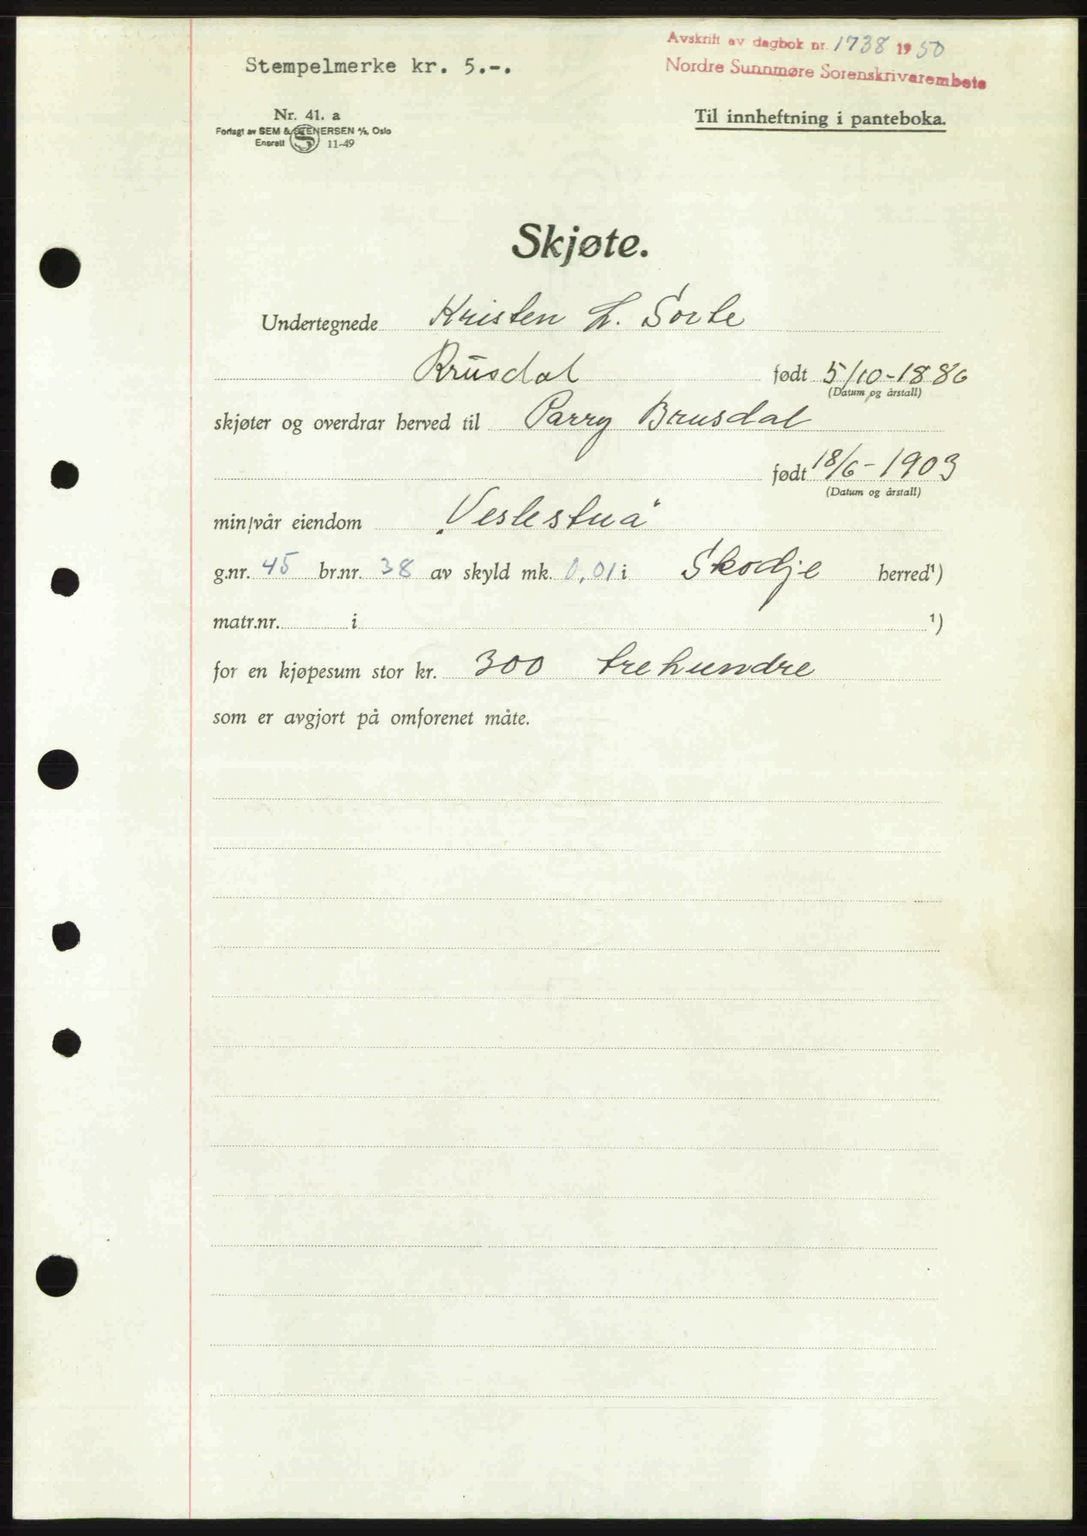 Avskrift av dagbok nr. 1738 1950
Nordre Sunnmøre Sorenskrivarembete
Stempelmerke kr. 5.-.
Nr. 41. a
Forlagt av SEM & STENERSEN A/S, Oslo
Enerett 11-49
Til innheftning i panteboka.
Skjøte.
Undertegnede Kristen L. Sorte
Brusdal født 5/10-1886
(Datum og årstall)
skjøter og overdrar herved til Parry Brusdal
født 18/6-1903
(Datum og årstall)
min/vår eiendom „Veslestua"
g.nr. 45 br.nr. 38 av skyld mk. 0,01 i Skodje herred¹)
matr.nr. i ¹)
for en kjøpesum stor kr. 300 trehundre
som er avgjort på omforenet måte.